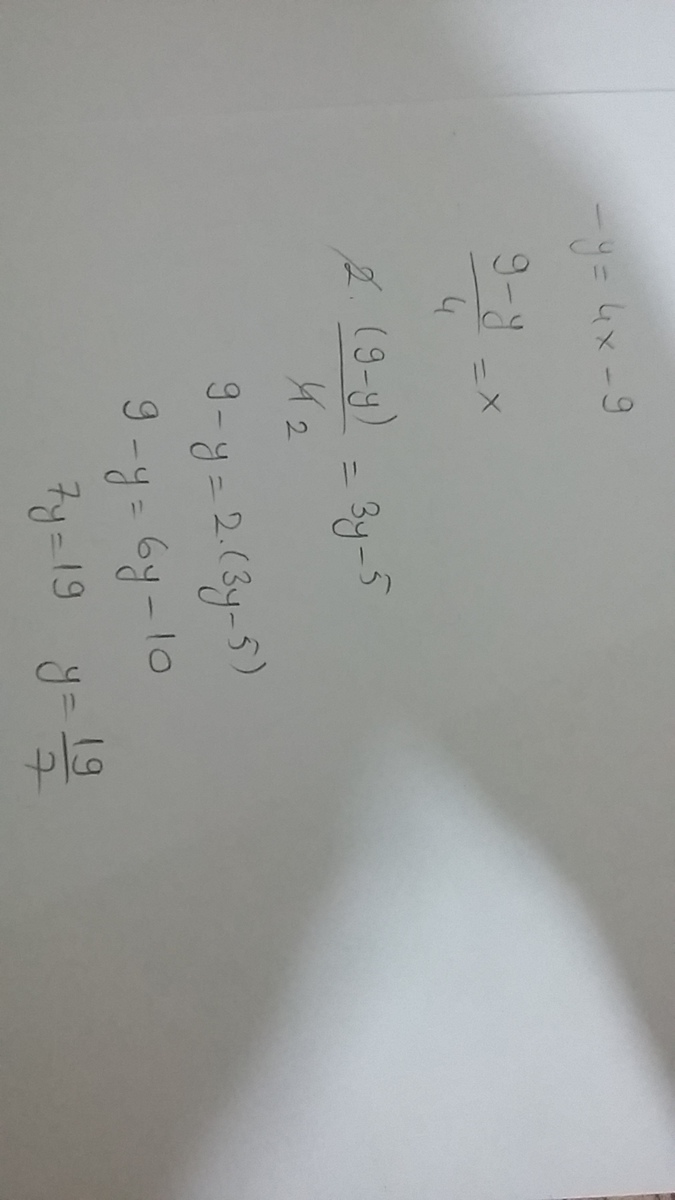 -y = 4x - 9
9-y/4 = x
2. (9-y)/4 2 = 3y-5
9-y = 2.(3y-5)
9-y = 6y-10
7y = 19 y = 19/7